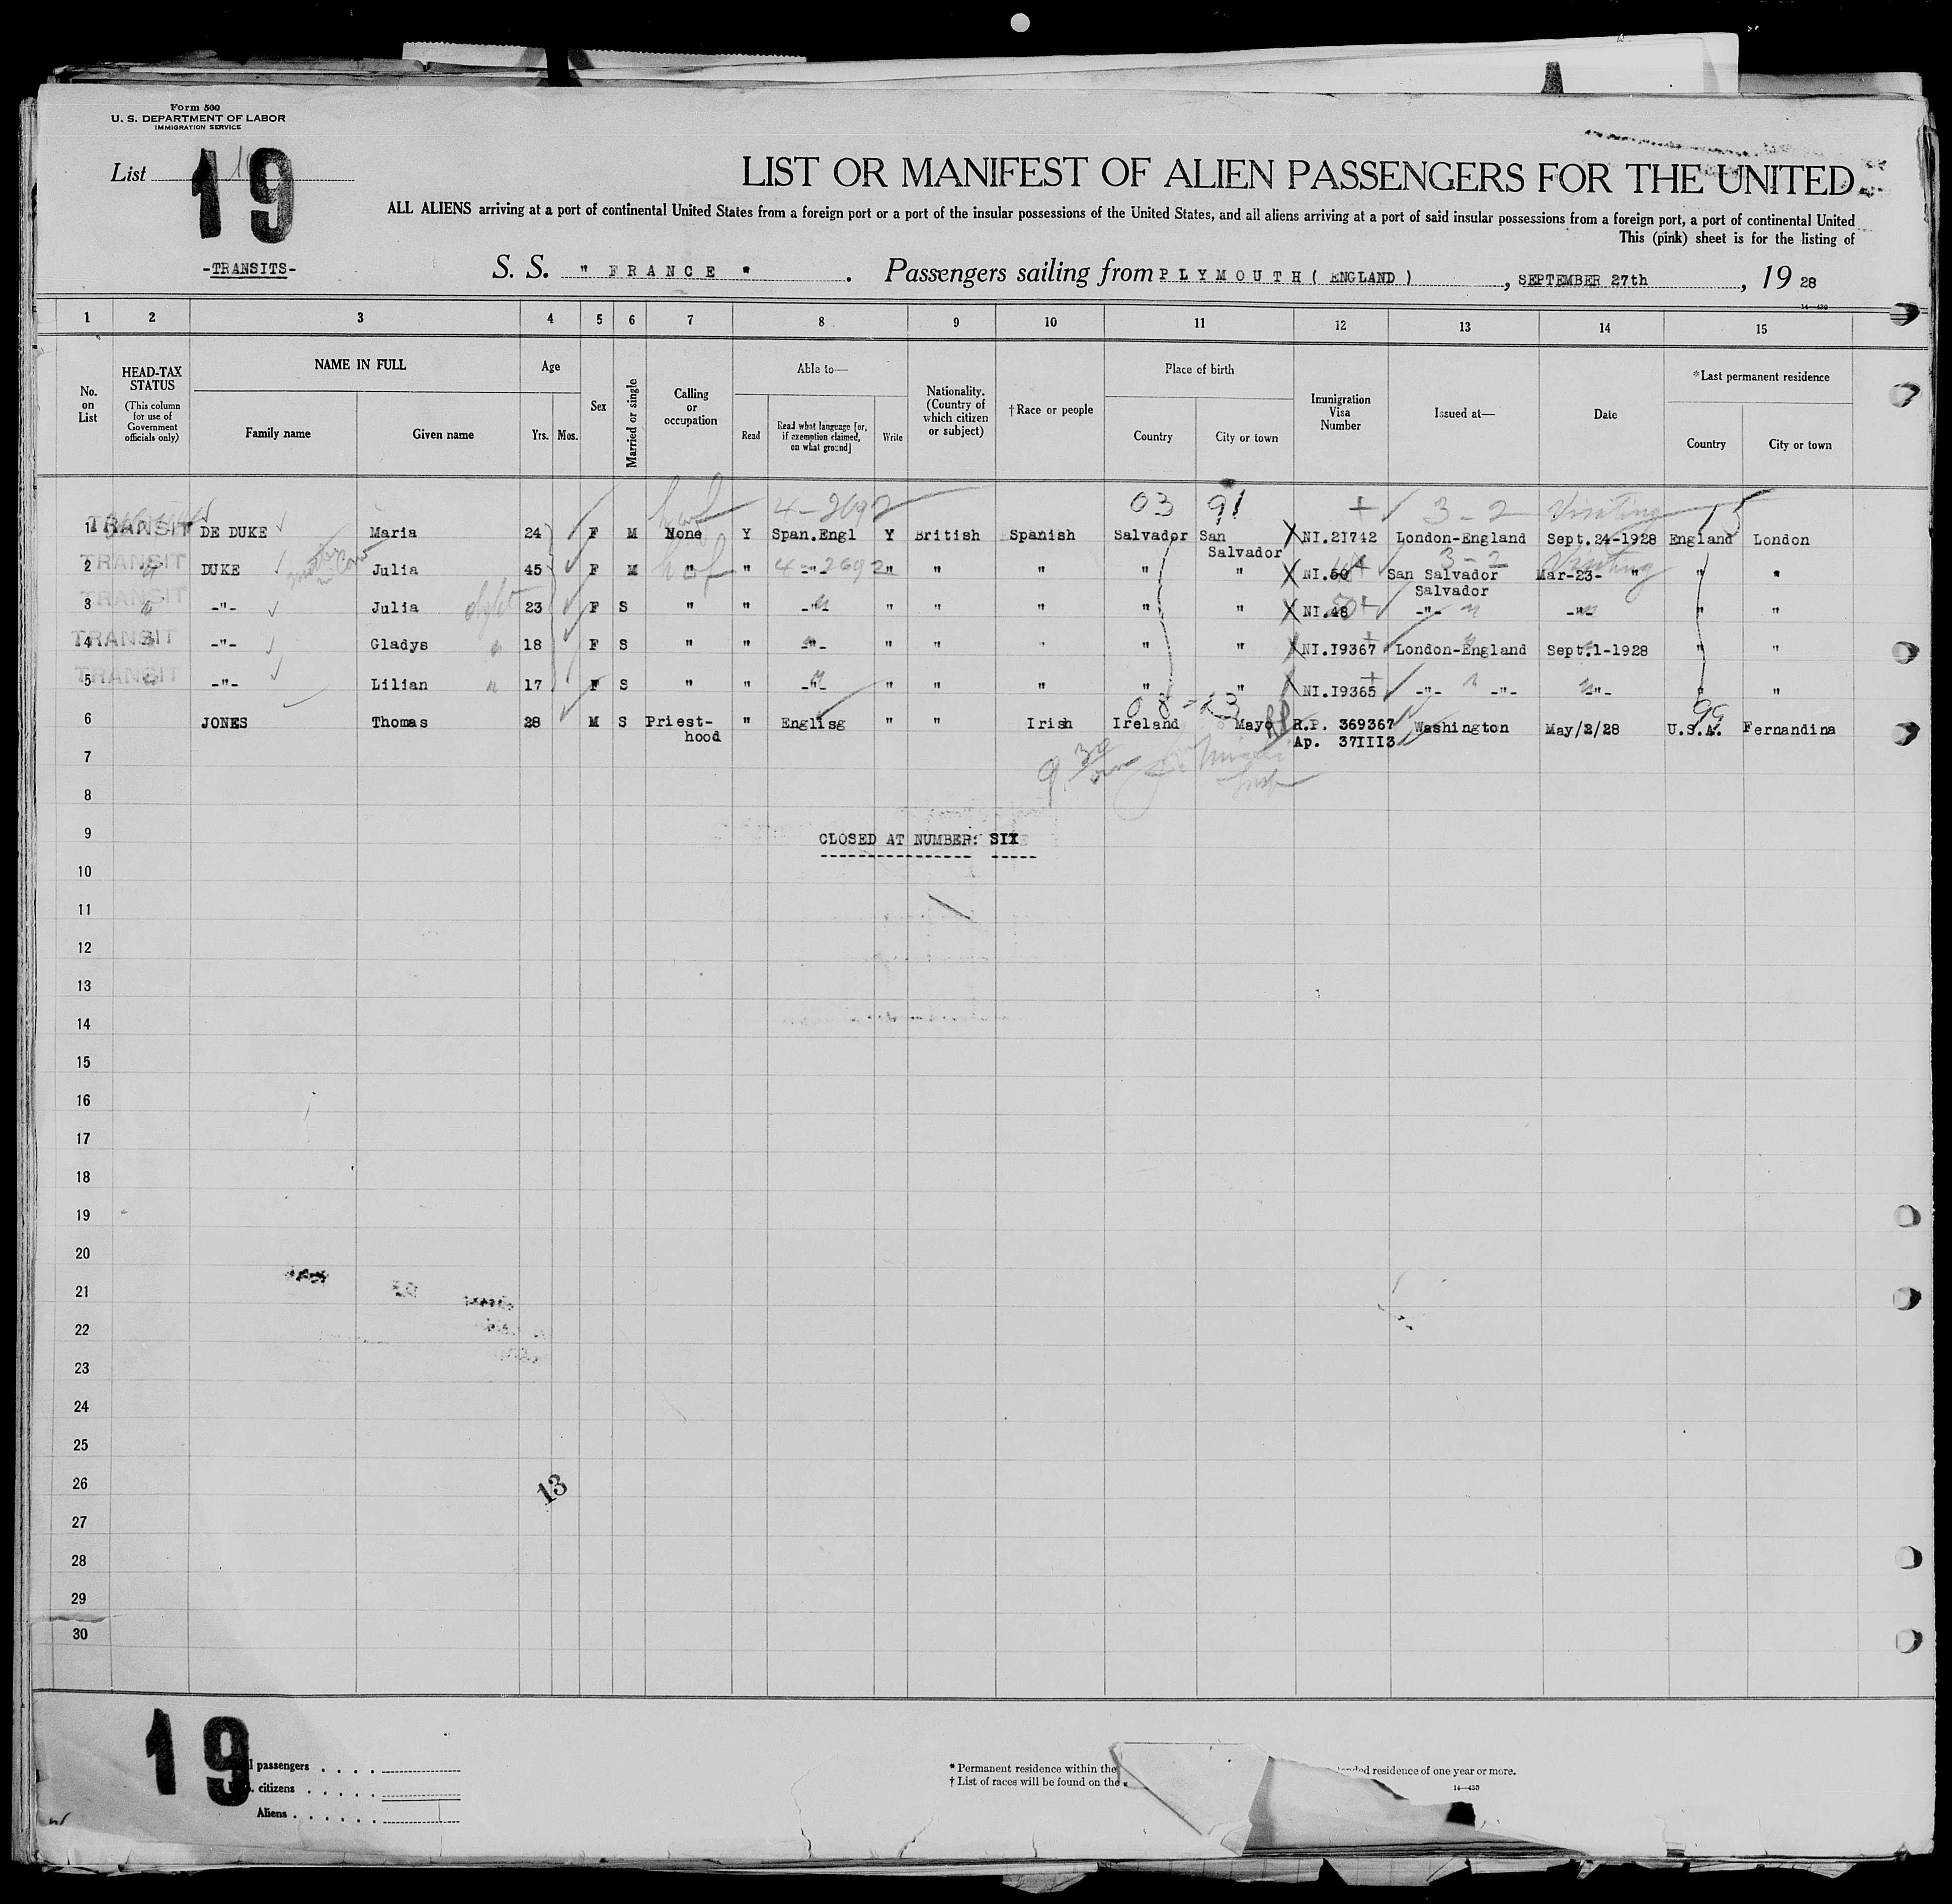 Form 500
U. S. DEPARTMENT OF LABOR
IMMIGRATION SERVICE
List 19
LIST OR MANIFEST OF ALIEN PASSENGERS FOR THE UNITED
ALL ALIENS arriving at a port of continental United States from a foreign port or a port of the insular possessions of the United States, and all aliens arriving at a port of said insular possessions from a foreign port, a port of continental United
This (pink) sheet is for the listing of
-TRANSITS-
S. S. " FRANCE " . Passengers sailing from PLYMOUTH ( ENGLAND ) , SEPTEMBER 27th , 19 28
14—430
1 2 3 4 5 6 7 8 9 10 11 12 13 14 15
No. on List
HEAD-TAX STATUS
(This column for use of Government officials only)
NAME IN FULL
Family name Given name
Age
Yrs. Mos.
Sex
Married or single
Calling or occupation
Able to—
Read
Read what language [or, if exemption claimed, on what ground]
Write
Nationality. (Country of which citizen or subject)
†Race or people
Place of birth
Country City or town
Immigration Visa Number
Issued at—
Date
*Last permanent residence
Country City or town
4-2692 03 91 + 3-2 Visiting
1 TRANSIT DE DUKE Maria 24 F M None Y Span.Engl Y British Spanish Salvador San Salvador X NI.21742 London-England Sept.24-1928 England London
4-2692 3-2 Visiting
2 TRANSIT DUKE Julia 45 F M " " -"- " " " " " X NI.50 San Salvador Salvador Mar-23- " " "
3 TRANSIT -"- Julia 23 F S " " -"- " " " " " X NI.48 -"- -"- " "
4 TRANSIT -"- Gladys 18 F S " " -"- " " " " " X NI.I9367 London-England Sept.1-1928 " "
5 TRANSIT -"- Lilian 17 F S " " -"- " " " " " X NI.I9365 -"- -"- -"- " "
08-23 99
6 JONES Thomas 28 M S Priest-hood " Englisg " " Irish Ireland Mayo R.P. 369367 Washington May/2/28 U.S.A. Fernandina
Ap. 37III3
7
8
9 CLOSED AT NUMBER: SIX
10
11
12
13
14
15
16
17
18
19
20
21
22
23
24
25
26
13
27
28
29
30
19
passengers
citizens
Aliens
* Permanent residence within the
residence of one year or more.
† List of races will be found on the
14—430